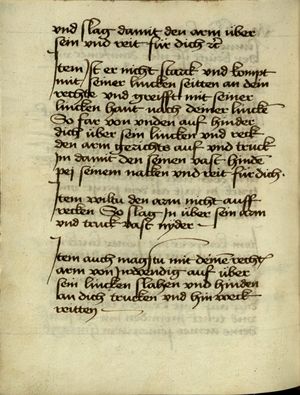 und slag damit den arm über
sein und reit für dich ꝛc
Item Ist er nicht starck und kompt
mit seiner lincken seitten an dein
rechte und greifft mit seiner
lincken hant nach deiner linck
So far von unden auf hinder
dich über sein lincken und reck
den arm gerichte auf und truck
In damit den seinen vast hinde
pej seinem nacken und reit für dich
Item wiltu den arm nicht auff
recken So slag In über sein arm
und truck vast nyder
Item auch magstu mit deine recht
arm von Indvendig auf über
sein lincken slahen und hinden
an dich trucken und hinweck
reitten